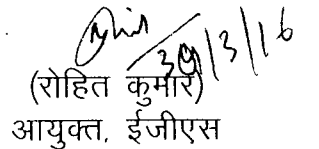 30/3/16
(रोहित कुमार)
आयुक्त, ईजीएस